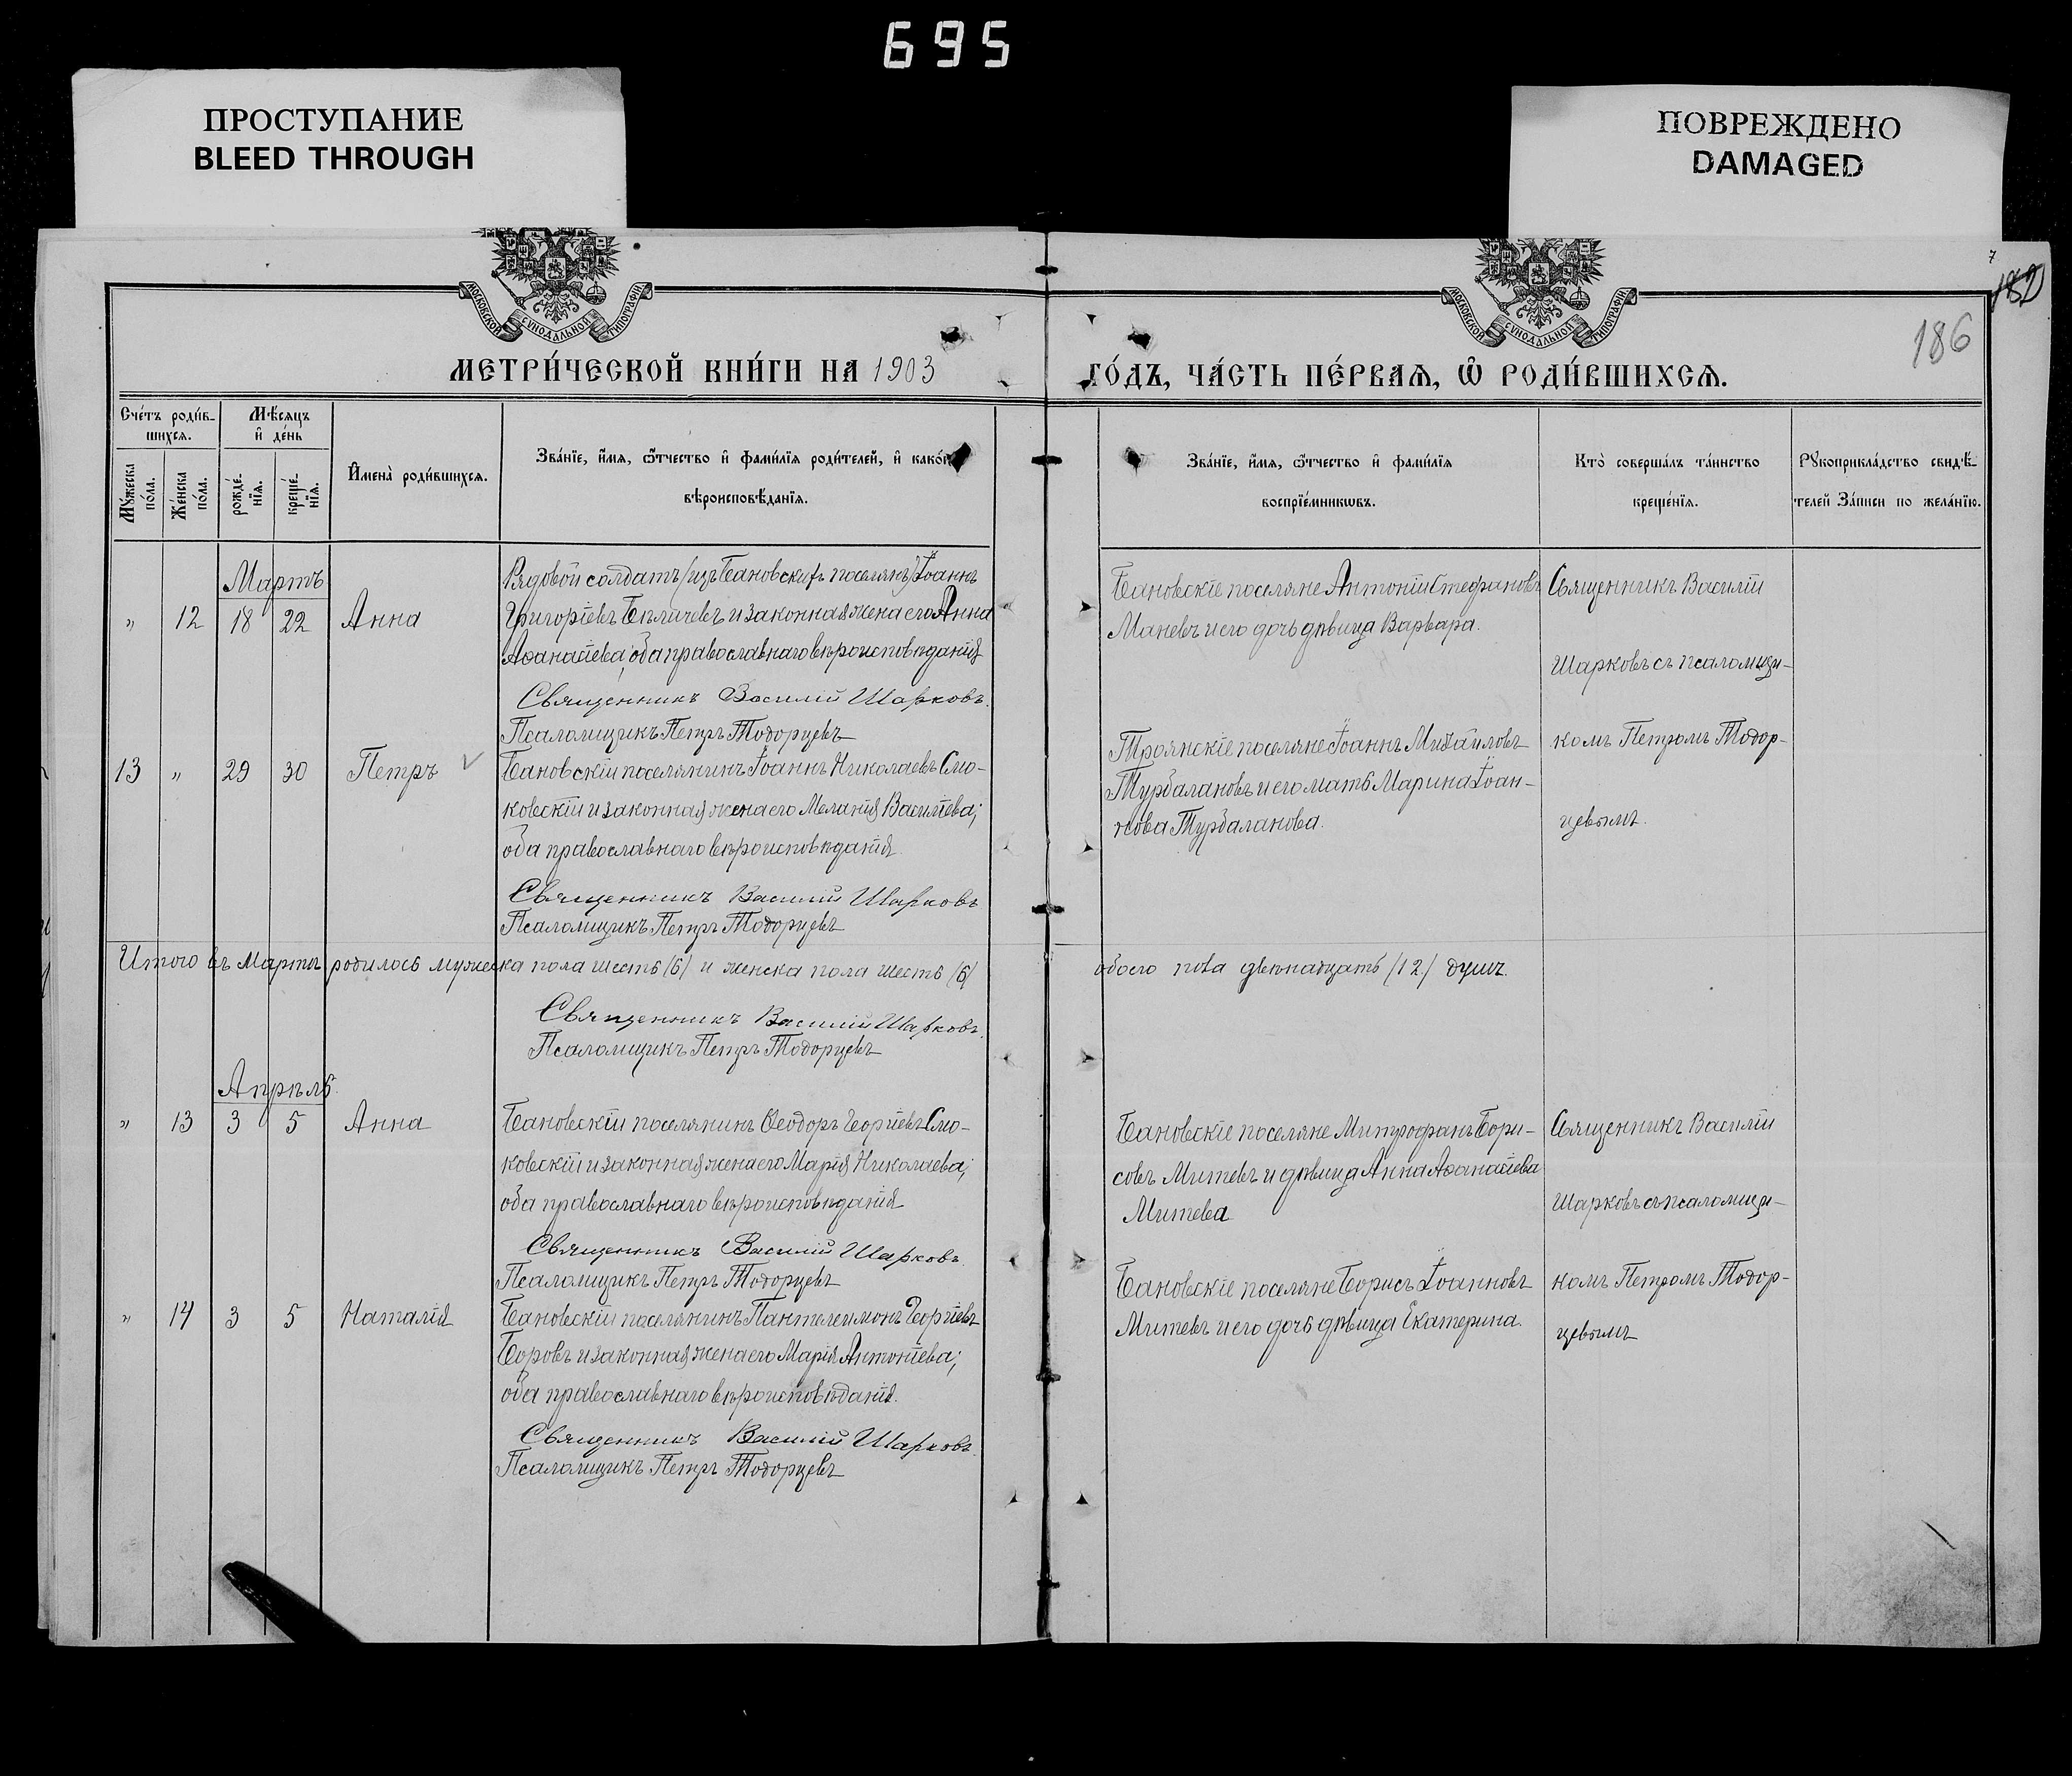 695
ПРОСТУПАНИЕ
BLEED THROUGH
ПОВРЕЖДЕНО
DAMAGED
МОСКОВСКОЙ СѴНОДАЛЬНОЙ ТИПОГРАФІИ
МОСКОВСКОЙ СѴНОДАЛЬНОЙ ТИПОГРАФІИ
7
186
МЕТРИ́ЧЕСКОЙ КНИ́ГИ НА 1903
ГО́ДЪ, ЧА́СТЬ ПЕ́РВАѦ, Ѽ РОДИ́ВШИХСѦ.
Сче́тъ роди́в-
шихсѧ.
Мѣ́сѧцъ
и҆ де́нь
Мꙋ́жеска по́ла.
Же́нска по́ла.
рожде́-нїѧ.
креще́-нїѧ.
И҆мена̀ роди́вшихсѧ.
Зва́нїе, и҆́мѧ, ѻ҆́тчество и҆ фами́лїѧ роди́телей, и҆ како́гѡ
вѣроисповѣ́данїѧ.
Зва́нїе, и҆́мѧ, ѻ҆́тчество и҆ фами́лїѧ
воспрїе́мникѡвъ.
Кто̀ соверша́лъ та́инство
креще́нїѧ.
Рꙋкоприкла́дство свидѣ́-
телей За́писи по жела́нїю.
Мартъ
" 12 18 22 Анна
Рядовой солдатъ /изъ Бановскихъ поселянъ/ Іоаннъ
Григоріевъ Бѣличевъ и законная жена его Анна
Аѳанасіева; оба православнаго вѣроисповѣданія
Священникъ Василій Шарковъ.
Псаломщикъ Петръ Тодорцевъ
Бановскіе поселяне Антоній Стефановъ
Маневъ и его дочь дѣвица Варвара.
Священникъ Василій
Шарковъ съ псаломщи-
комъ Петромъ Тодор-
цевымъ.
13 " 29 30 Петръ
Бановскій поселянинъ Іоаннъ Николаевъ Смо-
ковскій и законная жена его Меланія Василіева;
оба православнаго вѣроисповѣданія
Священникъ Василій Шарковъ
Псаломщикъ Петръ Тодорцевъ
Троянскіе поселяне Іоаннъ Михайловъ
Турбалановъ и его мать Марина Іоан-
нова Турбаланова.
Итого въ Мартѣ родилось мужеска пола шесть /6/ и женска пола шесть /6/
обоего пола двѣнадцать /12/ душъ.
Священникъ Василій Шарковъ.
Псаломщикъ Петръ Тодорцевъ
Апрѣль
" 13 3 5 Анна
Бановскій поселянинъ Ѳеодоръ Георгіевъ Смо-
ковскій и законная жена его Марія Николаева;
оба православнаго вѣроисповѣданія
Священникъ Василій Шарковъ.
Псаломщикъ Петръ Тодорцевъ
Бановскіе поселяне Митрофанъ Бори-
совъ Митевъ и дѣвица Анна Аѳанасіева
Митева
Священникъ Василій
Шарковъ съ псаломщи-
комъ Петромъ Тодор-
цевымъ
" 14 3 5 Наталія
Бановскій поселянинъ Пантелеимонъ Георгіевъ
Боровъ и законная жена его Марія Антоніева;
оба православнаго вѣроисповѣданія.
Священникъ Василій Шарковъ.
Псаломщикъ Петръ Тодорцевъ
Бановскіе поселяне Борисъ Іоанновъ
Митевъ и его дочь дѣвица Екатерина.